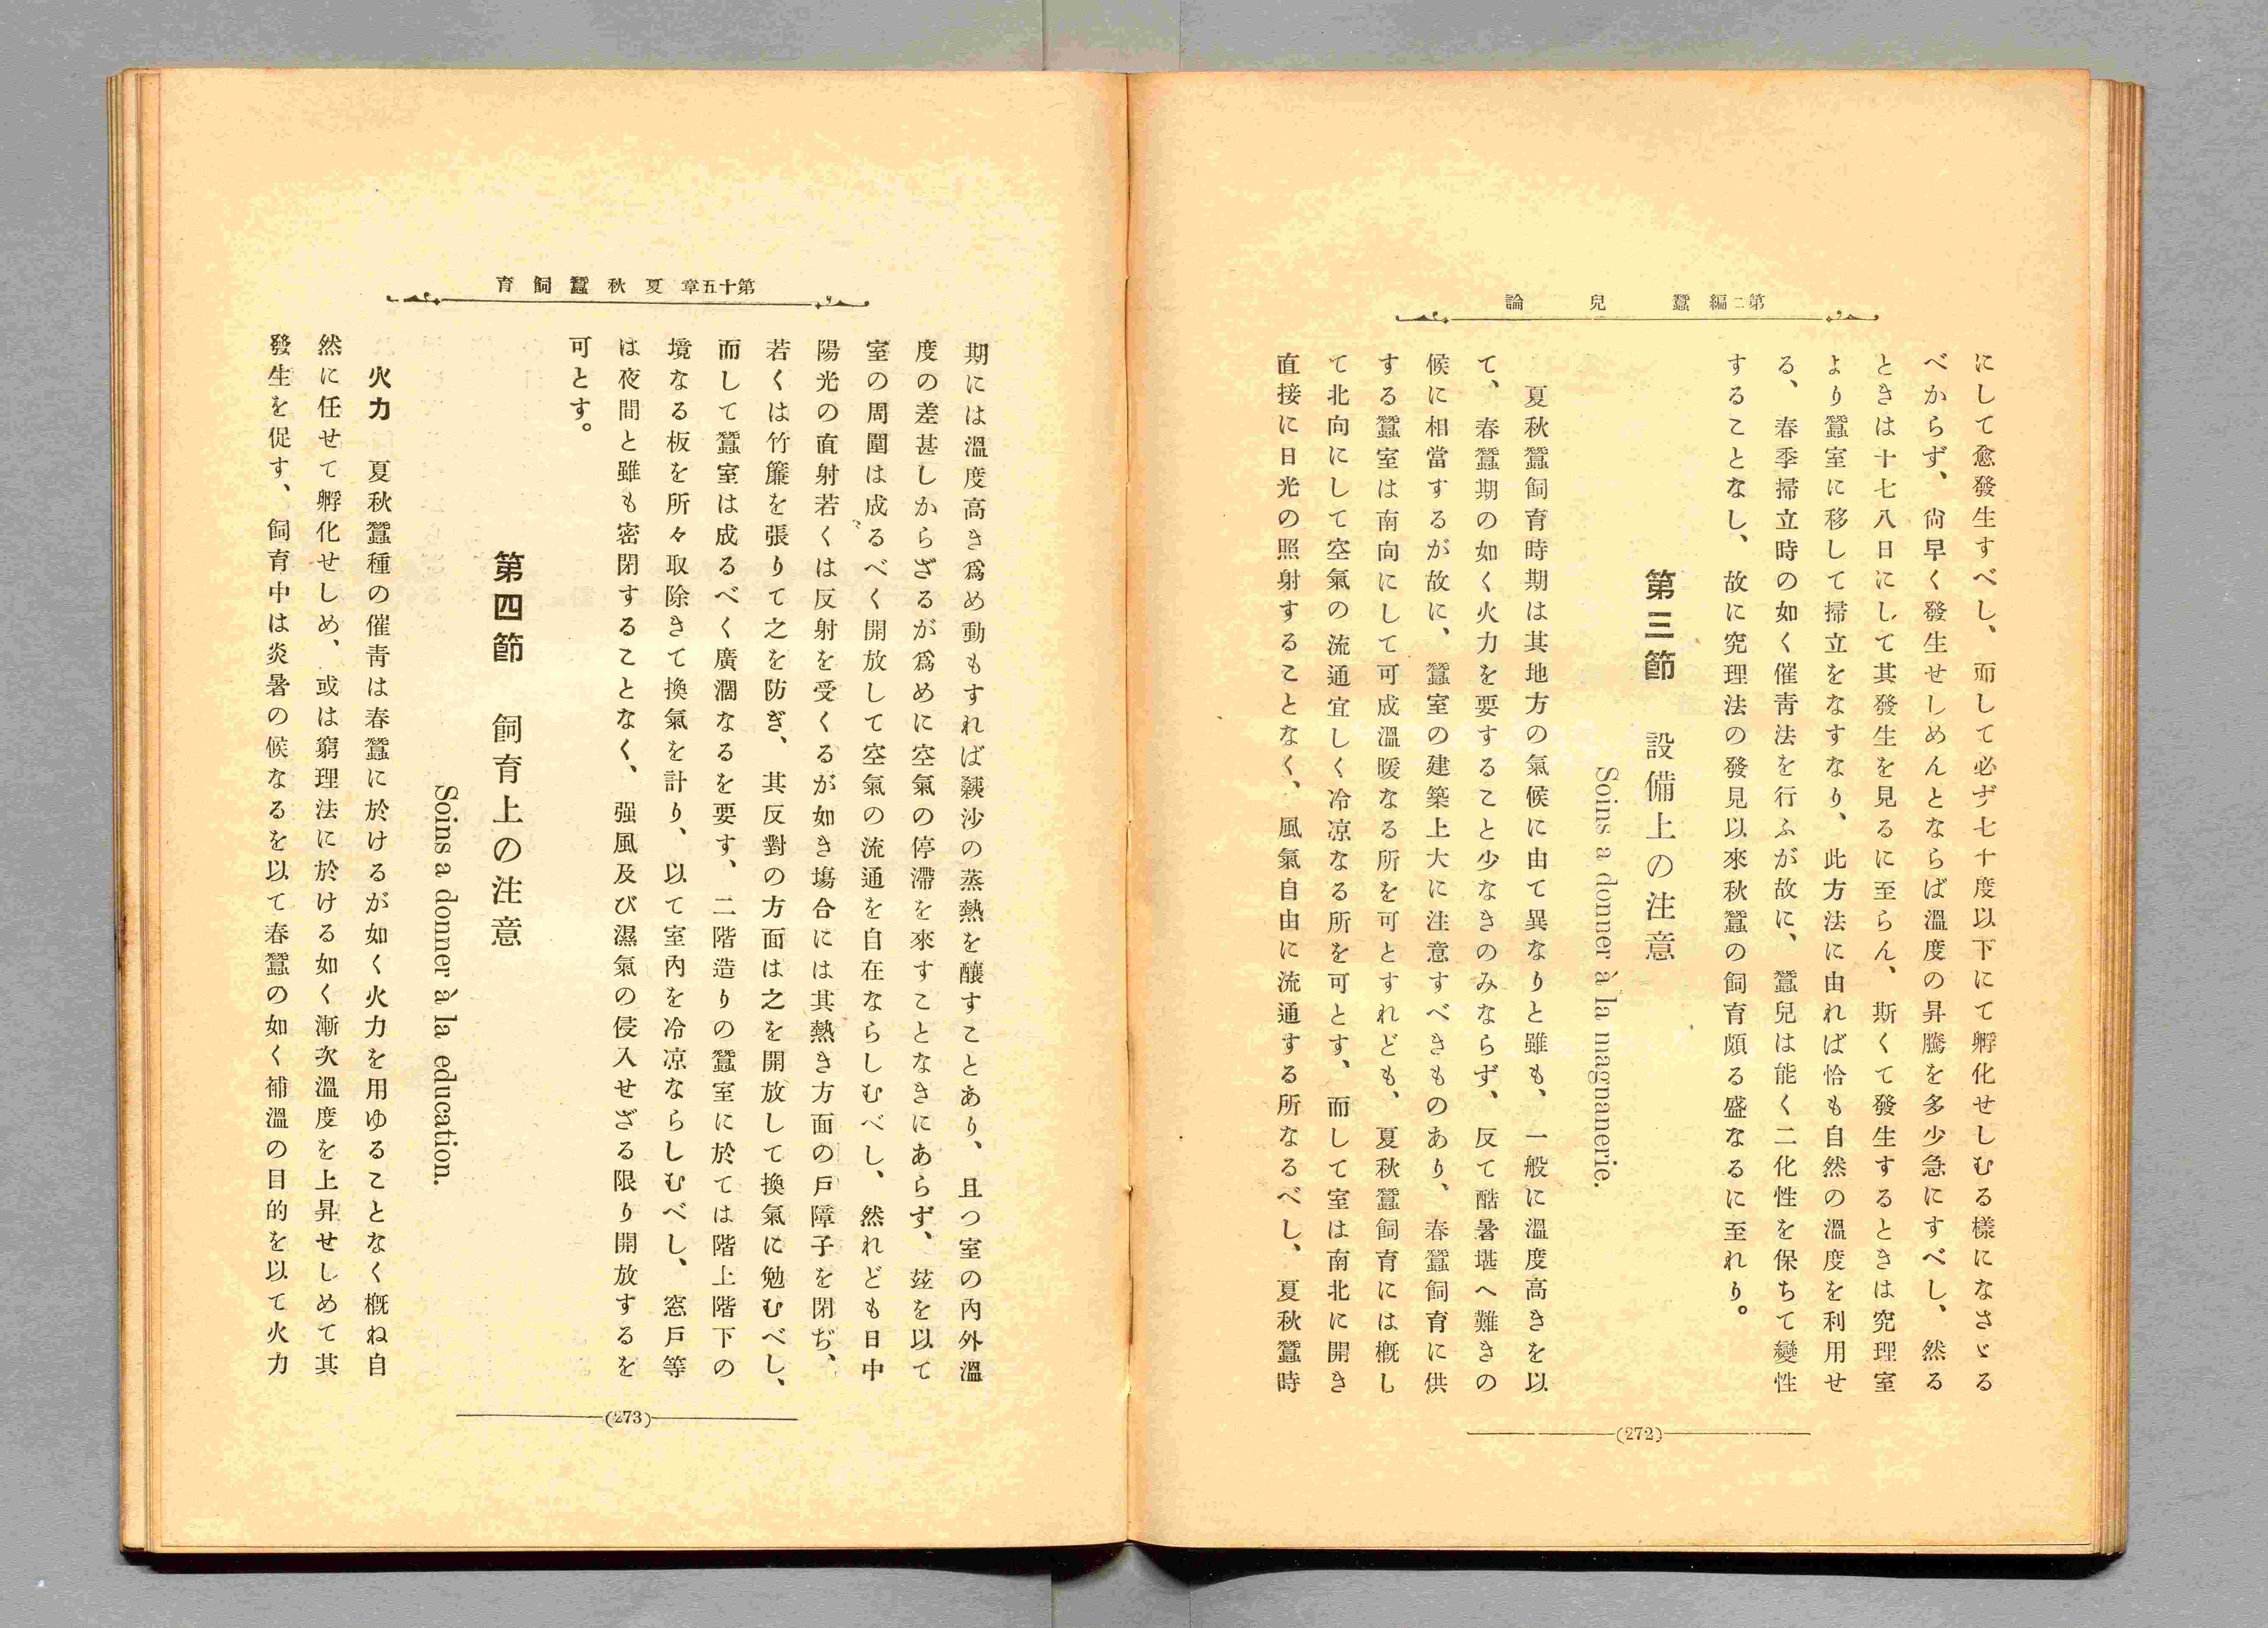 第二編 蠶兒論
にして愈發生すべし、而して必ず七十度以下にて孵化せしむる樣になさゞる
べからず、尙早く發生せしめんとならば溫度の昇騰を多少急にすべし、然る
ときは十七八日にして其發生を見るに至らん、斯くて發生するときは究理室
より蠶室に移して掃立をなすなり、此方法に由れば恰も自然の溫度を利用せ
る、春季掃立時の如く催靑法を行ふが故に、蠶兒は能く二化性を保ちて變性
することなし、故に究理法の發見以來秋蠶の飼育頗る盛なるに至れり。
第三節 設備上の注意
Soins a donner à la magnanerie.
夏秋蠶飼育時期は其地方の氣候に由て異なりと雖も、一般に溫度高きを以
て、春蠶期の如く火力を要すること少なきのみならず、反て酷暑堪へ難きの
候に相當するが故に、蠶室の建築上大に注意すべきものあり、春蠶飼育に供
する蠶室は南向にして可成溫暖なる所を可とすれども、夏秋蠶飼育には槪し
て北向にして空氣の流通宜しく冷凉なる所を可とす、而して室は南北に開き
直接に日光の照射することなく、風氣自由に流通する所なるべし、夏秋蠶時
(272)
第十五章 夏秋蠶飼育
期には溫度高き爲め動もすれば蘱沙の蒸熱を釀すことあり、且つ室の內外溫
度の差甚しからざるが爲めに空氣の停滯を來すことなきにあらず、玆を以て
室の周圍は成るべく開放して空氣の流通を自在ならしむべし、然れども日中
陽光の直射若くは反射を受くるが如き塲合には其熱き方面の戶障子を閉ぢ、
若くは竹簾を張りて之を防ぎ、其反對の方面は之を開放して換氣に勉むべし、
而して蠶室は成るべく廣濶なるを要す、二階造りの蠶室に於ては階上階下の
境なる板を所々取除きて換氣を計り、以て室內を冷凉ならしむべし、窓戶等
は夜間と雖も密閉することなく、强風及び濕氣の侵入せざる限り開放するを
可とす。
第四節 飼育上の注意
Soins a donner à la education.
火力 夏秋蠶種の催靑は春蠶に於けるが如く火力を用ゆることなく槪ね自
然に任せて孵化せしめ、或は窮理法に於ける如く漸次溫度を上昇せしめて其
發生を促す、飼育中は炎暑の候なるを以て春蠶の如く補溫の目的を以て火力
(273)